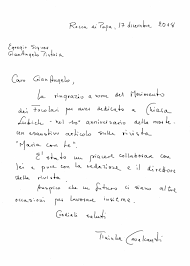 Rocca di Papa, 17 dicembre 2018
Egregio Signor
GianAngelo Pistoia
Caro GianAngelo,
La ringrazio a nome del Movimento
dei Focolari per aver dedicato a Chiara
Lubich - nel 10° anniversario della morte -
un esaustivo articolo sulla rivista
"Maria con te".
È stato un piacere collaborare con
lei e pure con la redazione e il direttore
della rivista.
Auspico che in futuro ci siano altre
occasioni per lavorare insieme.
Cordiali saluti